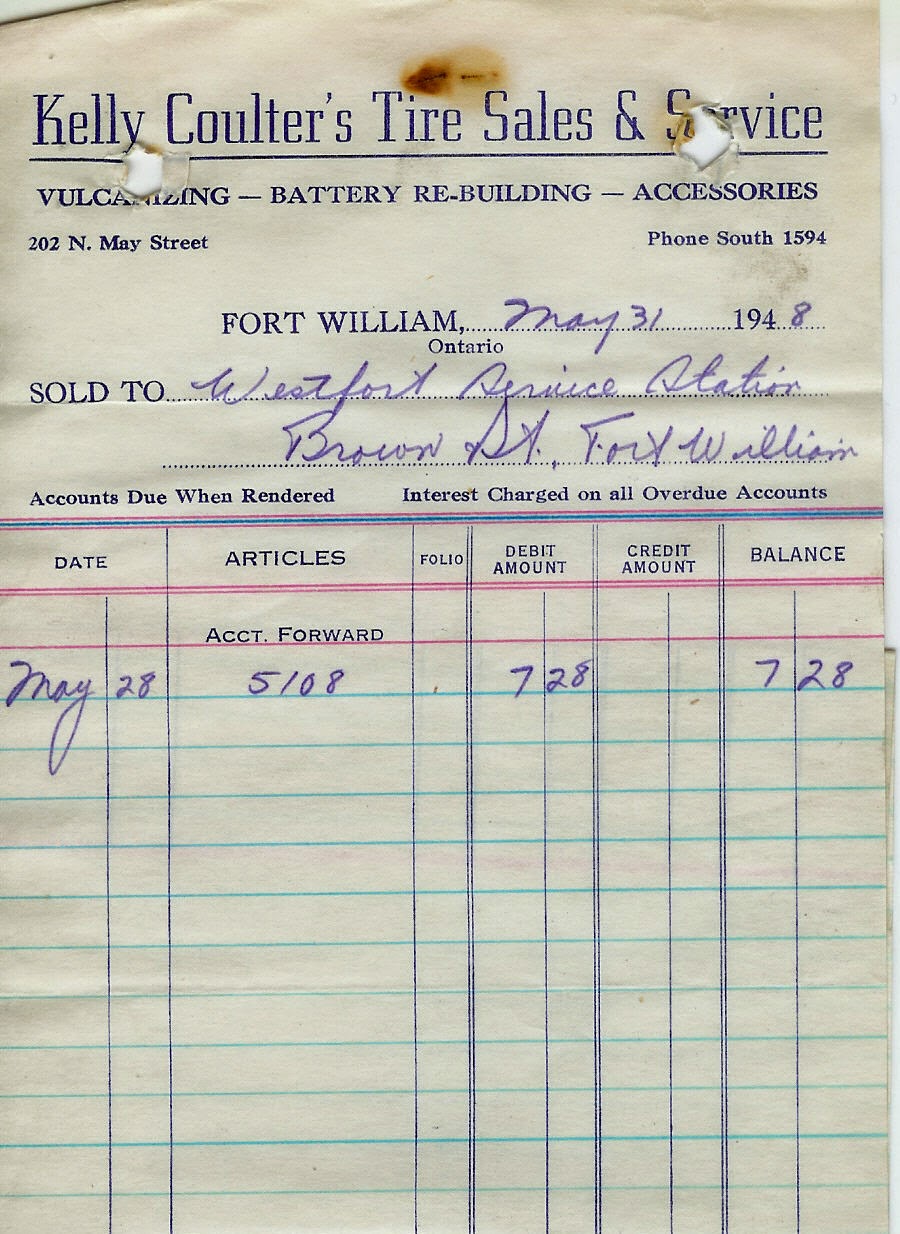 Kelly Coulter's Tire Sales & Service
VULCANIZING — BATTERY RE-BUILDING — ACCESSORIES
202 N. May Street Phone South 1594
FORT WILLIAM, May 31 1948
Ontario
SOLD TO Westfort Service Station
Brown St., Fort William
Accounts Due When Rendered Interest Charged on all Overdue Accounts
DATE ARTICLES FOLIO DEBIT AMOUNT CREDIT AMOUNT BALANCE
ACCT. FORWARD
May 28 5108 7 28 7 28